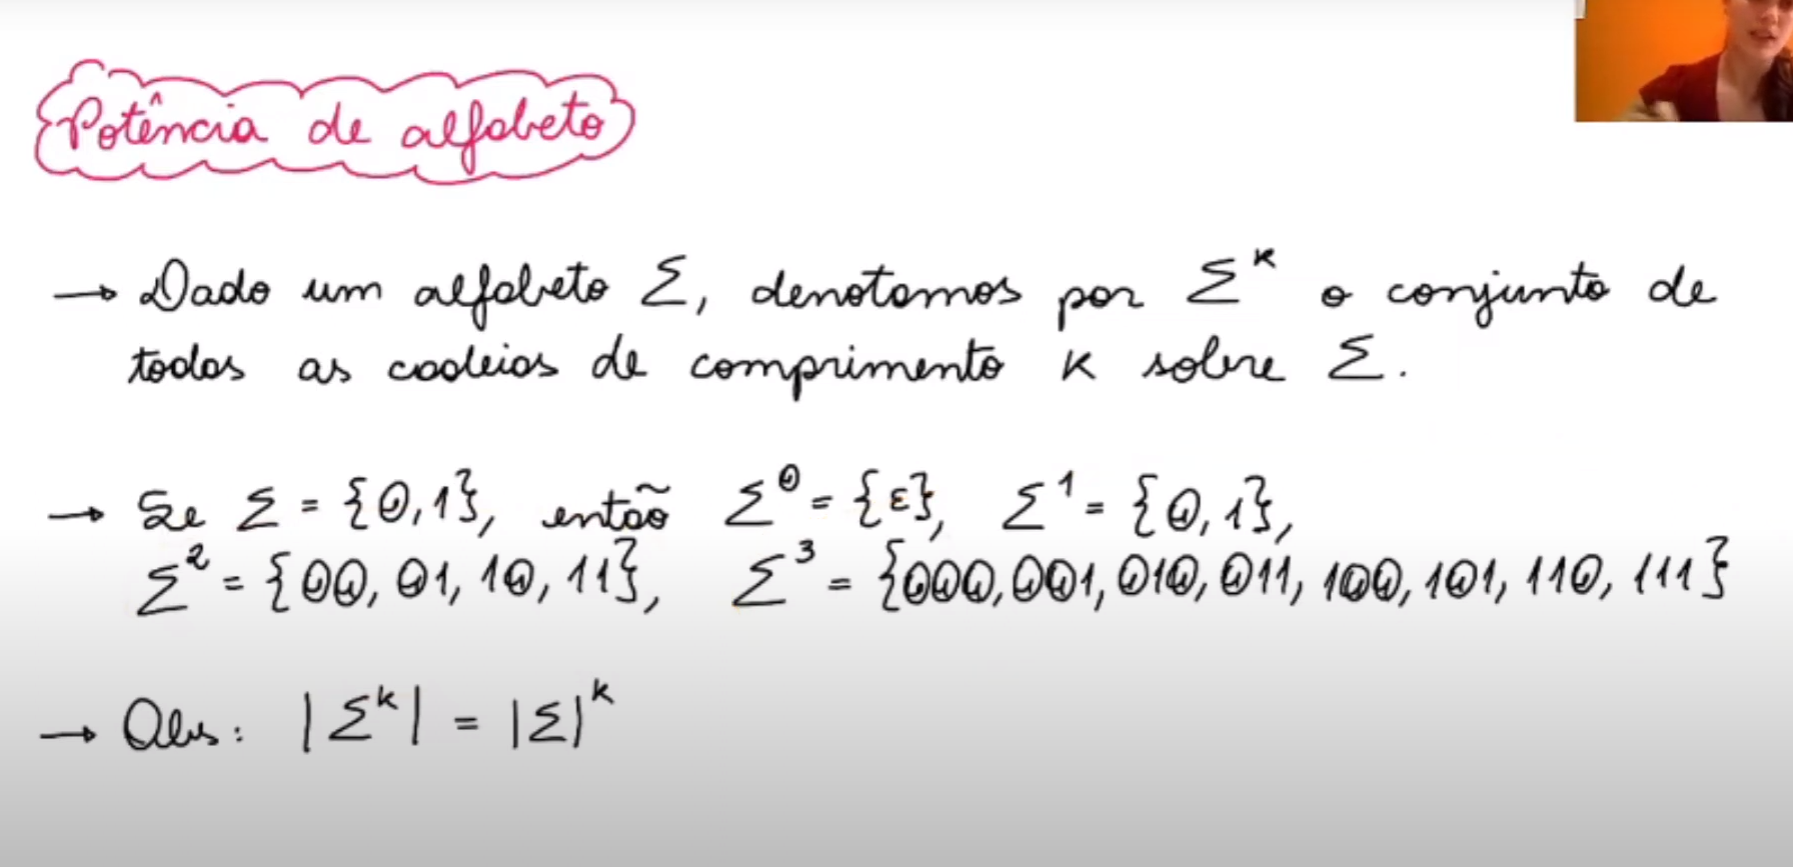 Potência de alfabeto
→ Dado um alfabeto Σ, denotamos por Σᵏ o conjunto de
todas as cadeias de comprimento K sobre Σ.
→ Se Σ = {0,1}, então Σ⁰ = {ε}, Σ¹ = {0,1},
Σ² = {00, 01, 10, 11}, Σ³ = {000, 001, 010, 011, 100, 101, 110, 111}
→ Obs: |Σᵏ| = |Σ|ᵏ